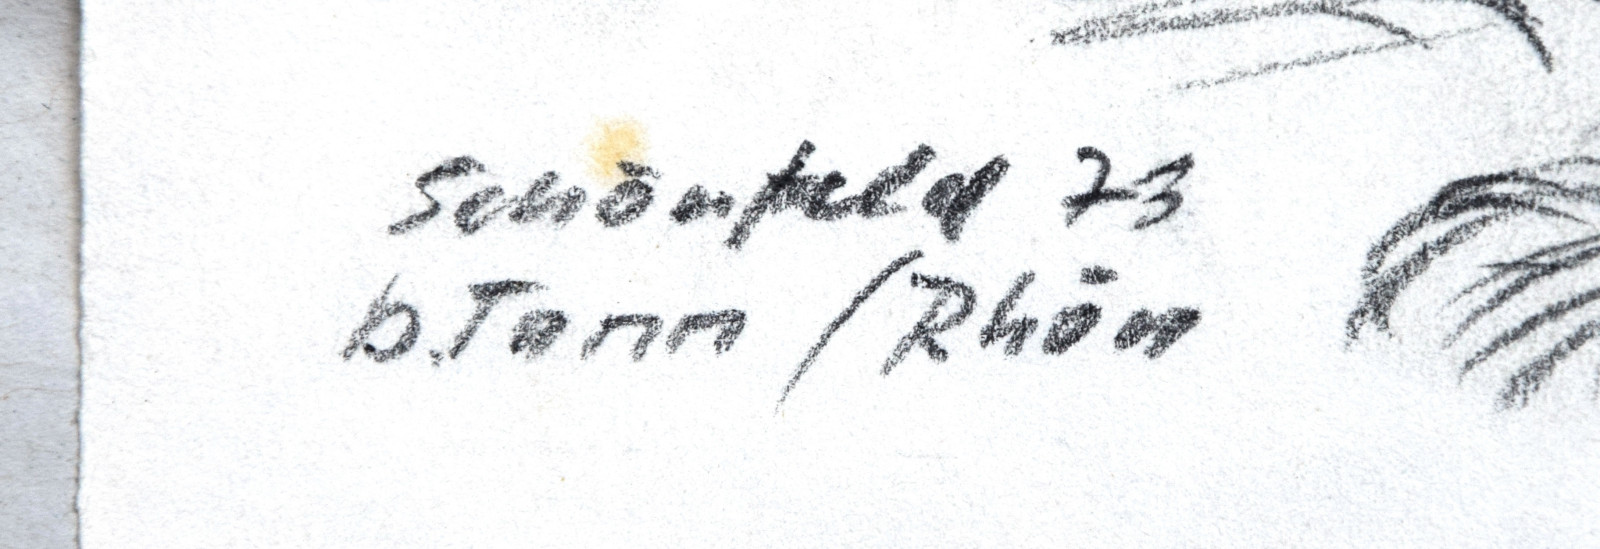 Schönfeld 23
b. Tann / Rhön